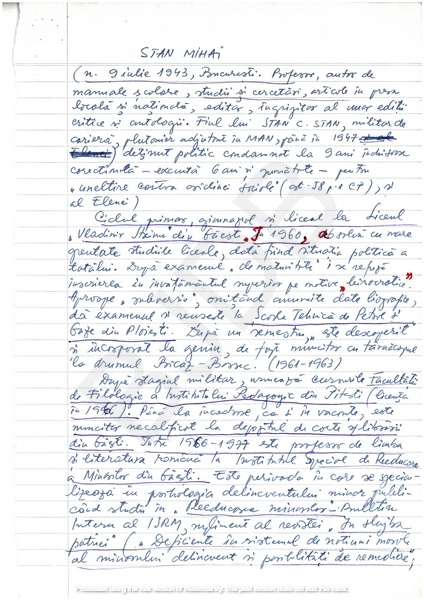 STAN MIHAI
(n. 9 iulie 1943, Bucuresti. Profesor, autor de
manuale școlare, studii și cercetări, articole în presa
locală și națională, editor, îngrijitor al unor ediții
critice și antologii. Fiul lui STAN C. STAN, militar de
carieră, plutonier adjutant în MAN, până în 1947
deținut politic condamnat la 9 ani închisoare
corecțională – execută 6 ani și jumătate – pentru
"uneltire contra ordinei sociale" (art. 58 p. 1 CP), și
al Elenei)
Ciclul primar, gimnazial și liceal la Liceul
"Vladimir Streinu" din Găești. În 1960, absolvă cu mare
greutate studiile liceale, dată fiind situația politică a
tatălui. După examenul "de maturitate" i se refuză
înscrierea în învățământul superior pe motive "birocratice".
Aproape "subversiv", omițând anumite date biografice,
dă examenul și reusește, Școala Tehnică de Petrol și
Gaze din Ploiești. După un semestru, "este descoperit"
și încorporat la geniu, de fapt muncitor cu târnăcopul
la drumul Bicaz-
(1961-1963)
După stagiul militar, urmează cursurile Facultății
de Filologie a Institutului Pedagogic din Pitești
în 1966). Până la încadrare, ca și în vacanțe, este
muncitor necalificat la depozitul de carte și librării
din Găești. Între 1966-1977 este profesor de limba
și literatura română la Institutul Special de Reeducare
a Minorilor din Găești. Este perioada în care se specia-
lizează în psihologia delincventului minor publi-
când studii în "Reeducarea minorilor" - Buletin
Intern al ISRM, supliment al revistei "În slujba
patriei" ("Deficiențe în sistemul de noțiuni morale
al minorului delincvent și posibilități de remediere",